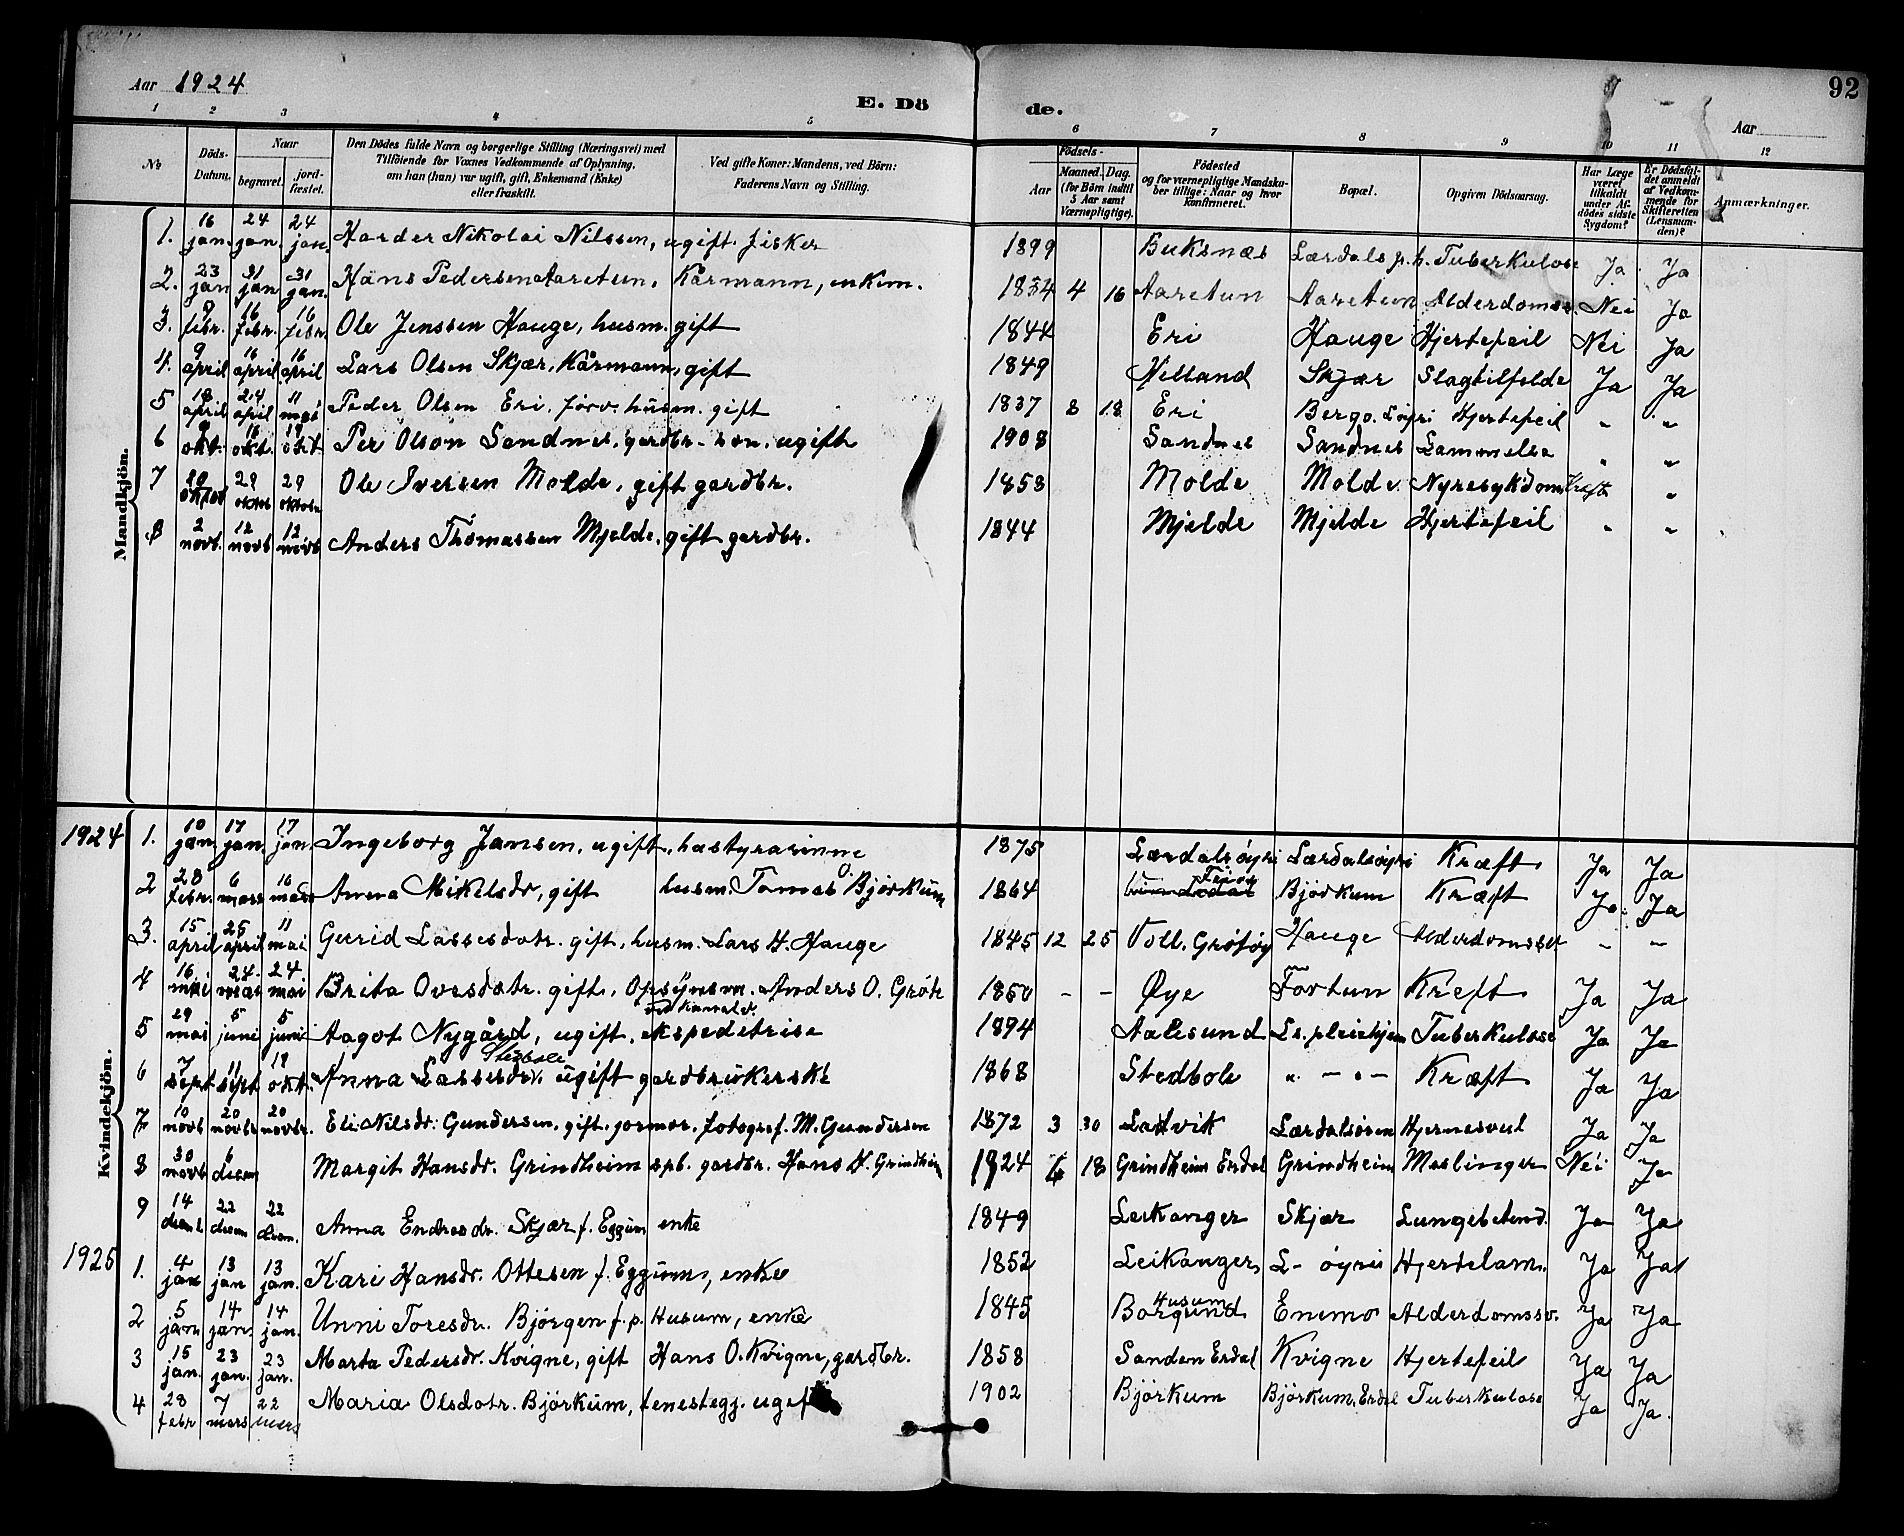 Aar 1924
E. Döde.
92
Aar
1 2 3 4 5 6 7 8 9 10 11 12
No
Döds-Datum.
Naar begravet. jordfæstet.
Den Dödes fulde Navn og borgerlige Stilling (Næringsvei) med
Tilföiende for Voxnes Vedkommende af Oplysning,
om han (hun) var ugift, gift, Enkemand (Enke)
eller fraskilt.
Ved gifte Koner: Mandens, ved Börn:
Faderens Navn og Stilling.
Födsels-
Aar Maaned. Dag.
(for Börn indtil
5 Aar samt
Værnepligtige).
Födested
og for værnepligtige Mandskaber tillige: Naar og hvor
konfirmeret.
Bopæl.
Opgiven Dödsaarsag.
Har Læge
været
tilkaldt
under Afdödes sidste
Sygdom?
Er Dödsfaldet anmeldt
af Vedkommende for
Skifteretten
(Lensmanden)?
Anmærkninger.
Mandkjön.
1. 16 jan. 24 jan. 24 jan. Harder Nikolai Nilssen, ugift. fisker 1899 Buksnæs Lærdals p.h. Tuberkulose Ja Ja
2. 23 jan 31 jan 31 jan. Hans Pedersen Aaretun, Kårmann, enkem. 1834 4 16 Aaretun Aaretun Alderdomss. Nei Ja
3. 9 febr. 16 febr. 16 febr. Ole Jenssen Hauge, husm. gift 1844 Eri Hauge Hjertefeil Nei Ja
4. 9 april 16 april 16 april Lars Olsen Skjær, Kårmann, gift 1849 Skjær Slagtilfelde Ja Ja
5 18 april 24 april 11 mai Peder Olsen Eri, forv. husm. gift 1837 8 18 Eri Hjertefeil " "
6 9 okt. 16 okt. 19 okt. Per Olson Sandnes, gardbr. søn, ugift 1908 Sandnes Sandnes Lammelse " "
7 20 oktob 29 oktob 29 oktobr Ole Iversen Molde, gift gardbr. 1853 Molde Molde Nyresykdom Kreft "
8 2 novb. 12 novb 12 novb Anders Thomassen Mjelde, gift gardbr. 1844 Mjelde Mjelde Hjertefeil " "
Kvindekjön.
1924 1. 10 jan. 17 jan. 17 jan. Ingeborg Jansen, ugift, hustyrarinne 1875 Lærdalsøyri Lærdalsøyri Kræft Ja Ja
2 28 febr. 6 mars 16 mars Anna Mikelsdr, gift husm. Tomas O. Bjørkum 1864 Bjørkum Kræft Ja Ja
3. 15 april 25 april 11 mai Gurid Lassesdotr. gift, husm. Lars H. Hauge 1845 12 25 Voll. Grøtøy Hauge Alderdomssv - -
4 16 mai 24 mai 24 mai Brita Ovesdatr. gift, Opsynsm. Anders O. Grøtz 1850 - - Øye Fortun Kreft Ja Ja
5 29 mai 5 juni 5 juni Aagot Nygård, ugift, ekspeditrise 1894 Aalesund Ls. pleiehjem Tuberkulose Ja Ja
6 7 sept 11 sept 19 okt. Anna Lassesdtr. Stebole ugift gardbrukerske 1868 Stedbole " - " - Kræft Ja Ja
7 10 novb 20 novbr 20 novbr. Eli Nilsdr. Gundersen, gift. jormor. fotograf. M. Gundersen 1872 3 30 Ladvik Lærdalsøren Hjernesvul Ja Ja
8 30 novb 6 desem Margit Hansdr. Grindheim spb. gardbr. Hans H. Grindheim 1924 6 18 Grindheim Erdal Grindheim Meslinger Nei Ja
9 14 desemb 22 desem 22 desem. Anna Endresdr. Skjær f. Eggum enke 1849 Leikanger Skjær Lungebetend. Ja Ja
1925 1. 4 jan 13 jan 13 jan. Kari Hansdr. Ottesen f. Eggum, enke 1852 Leikanger L- øyri Hjertelam. Ja Ja
2 5 jan 14 jan. 14 jan. Unni Toresdr. Bjørgen f. p. Husum, enke 1845 Husum Borgund Enemo Alderdomssv. Ja Ja
3 15 jan. 23 jan. 23 jan. Marta Pedersdr. Kvigne, gift Hans O. Kvigne, gardbr. 1858 Sanden Erdal Kvigne Hjertefeil Ja Ja
4 28 febr 7 mars 22 mars Maria Olsdotr. Bjørkum, tenestegj. ugift 1902 Bjørkum Bjørkum, Erdal Tuberkulose Ja Ja.